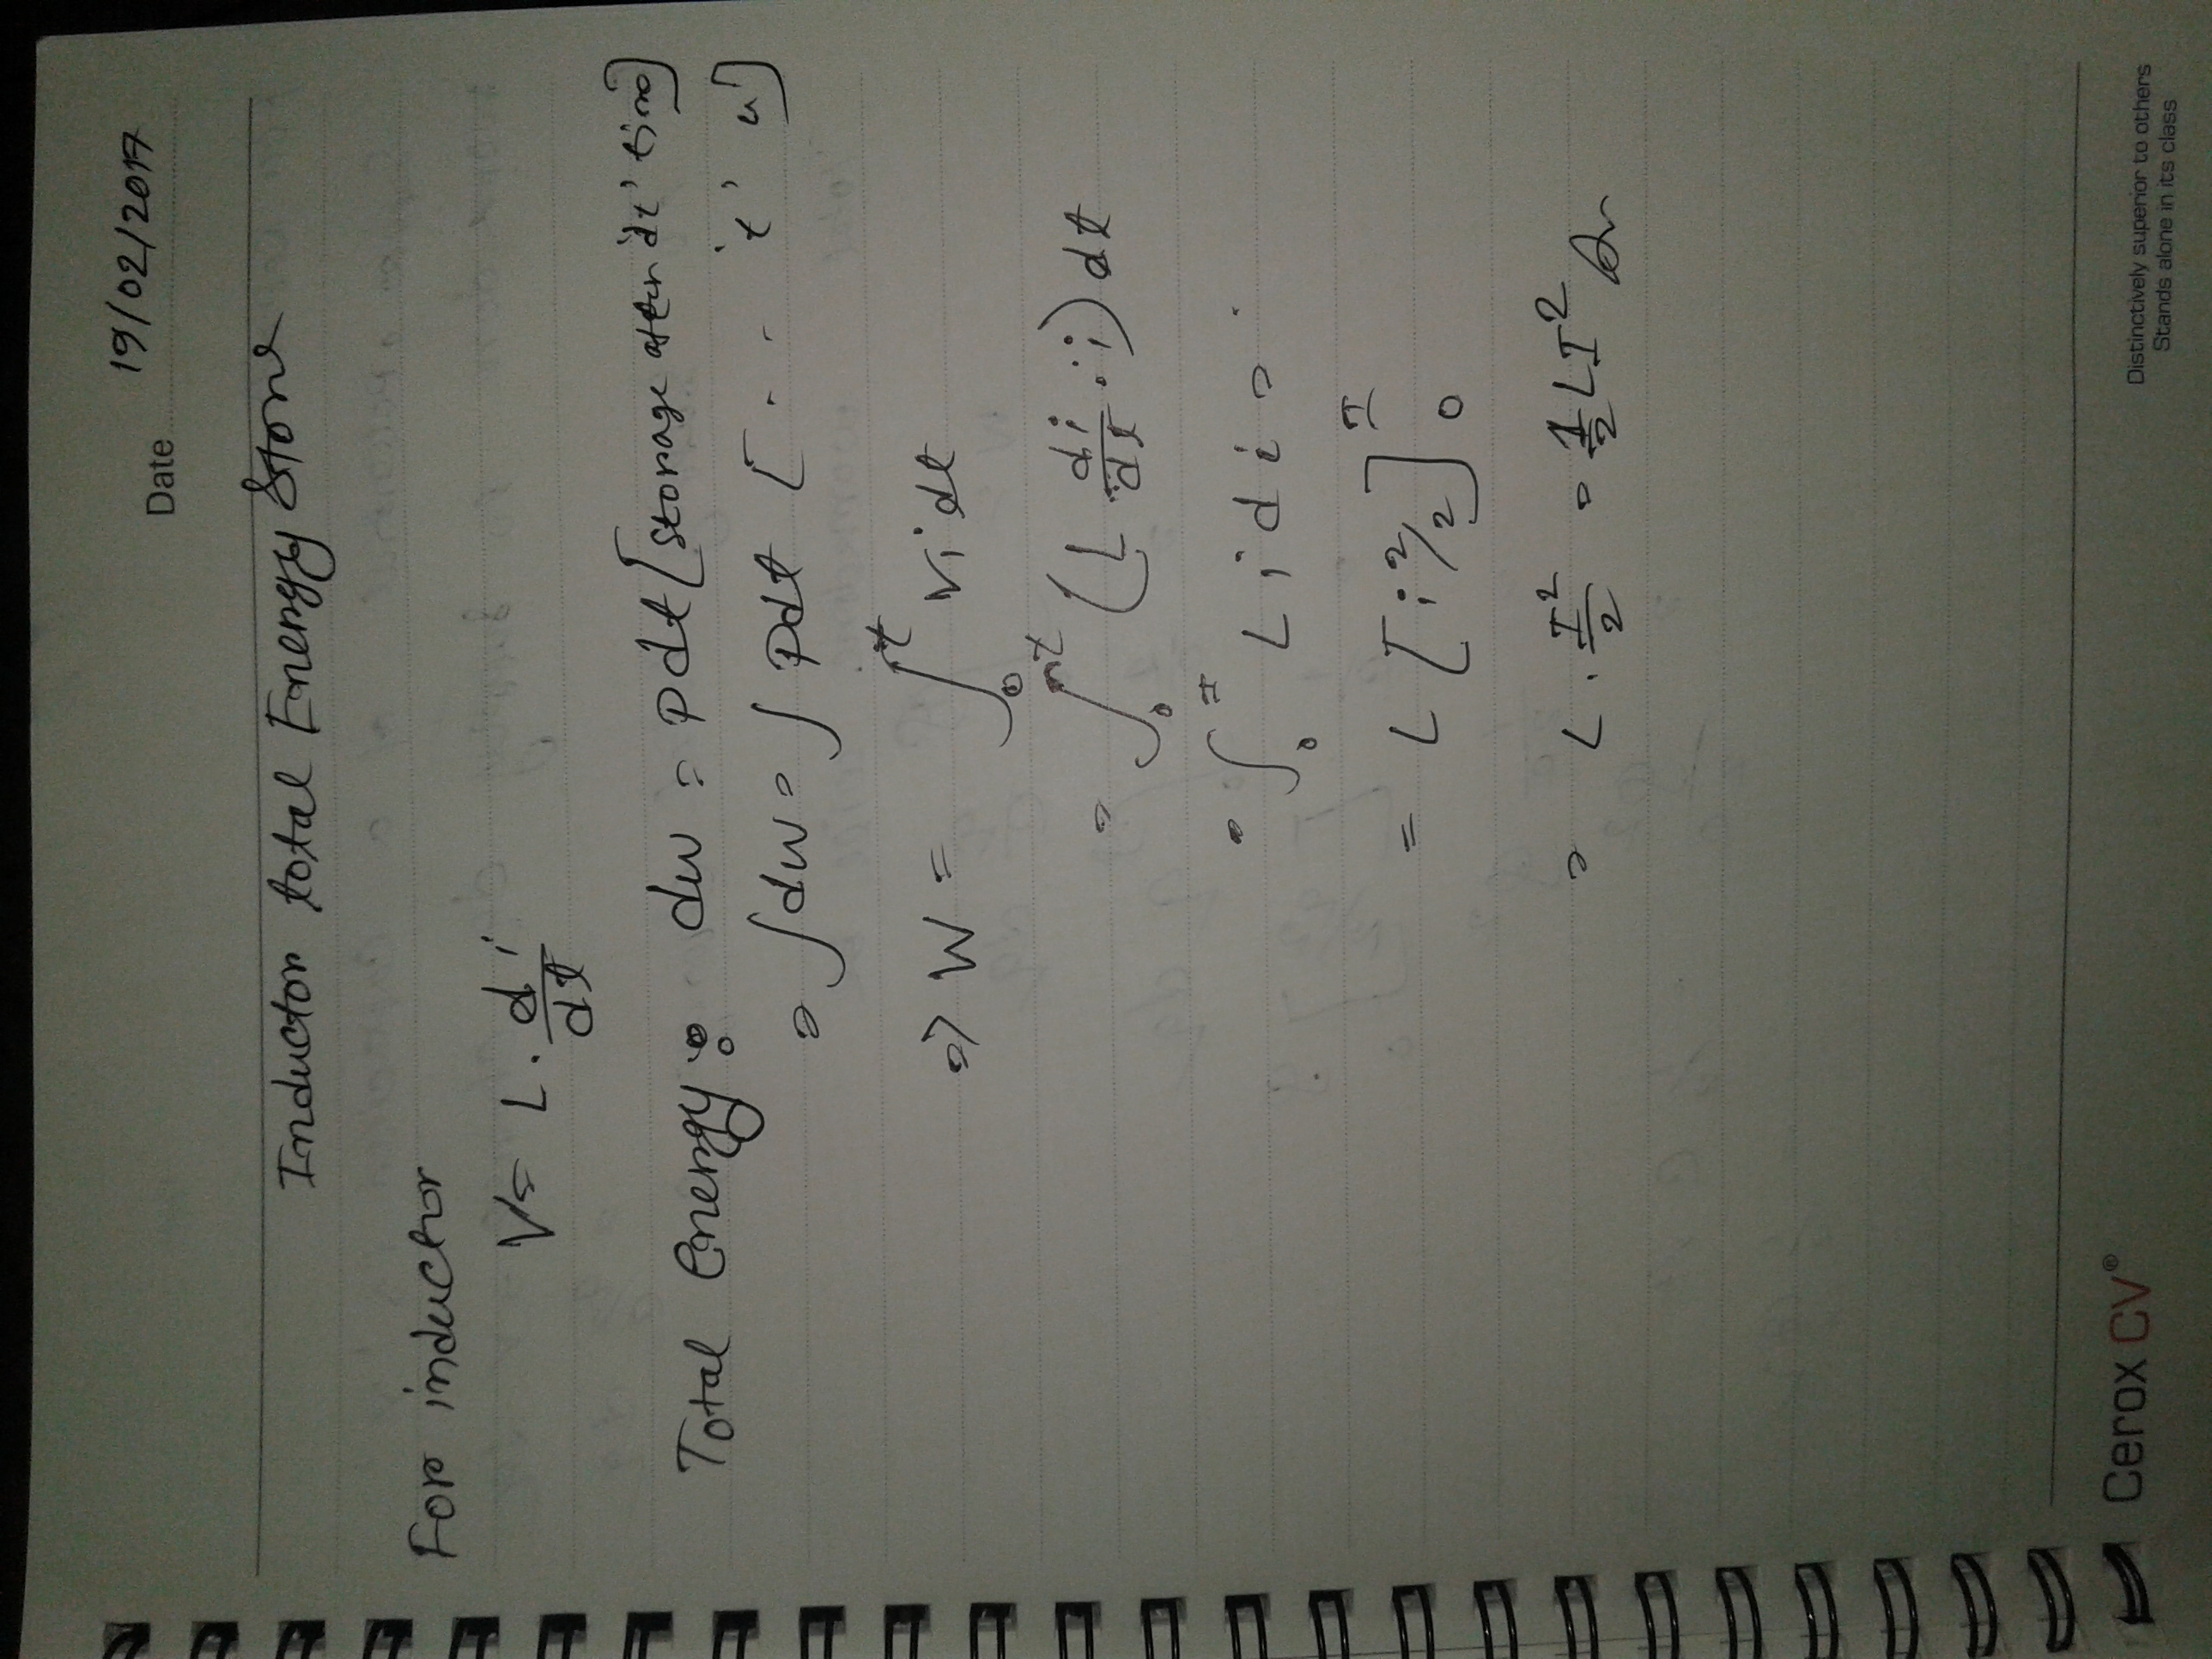 19/02/2017
Date
Inductor total Energy Store
For inductor
V = L . di/dt
Total energy : dw = pdt [storage after 'dt' time]
= ∫dw = ∫ Pdt [ . . 't' "]
=> W = ∫₀ᵗ Vi dt
= ∫₀ᵗ (L di/dt . i) dt
= ∫₀ᴵ L i d i =
= L [i²/2]₀ᴵ
= L . I²/2 = 1/2 LI²
Cerox CV®
Distinctively superior to others
Stands alone in its class